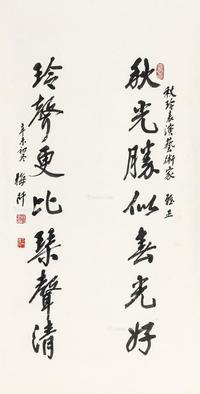 秋玲表演藝術家 雅正
秋光勝似春光好
玲聲更比琴聲清
辛未初冬 梅阡